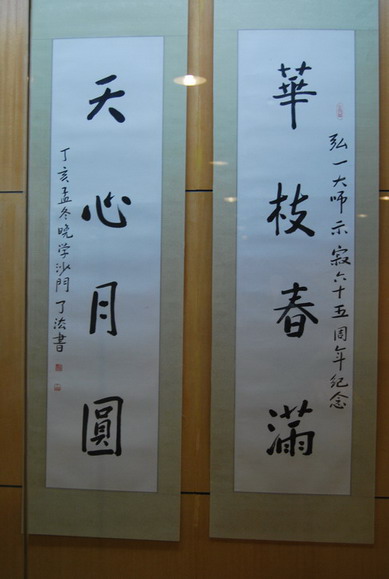 華枝春滿
弘一大師示寂六十五周年纪念
天心月圓
丁亥孟冬晚学沙門了法書